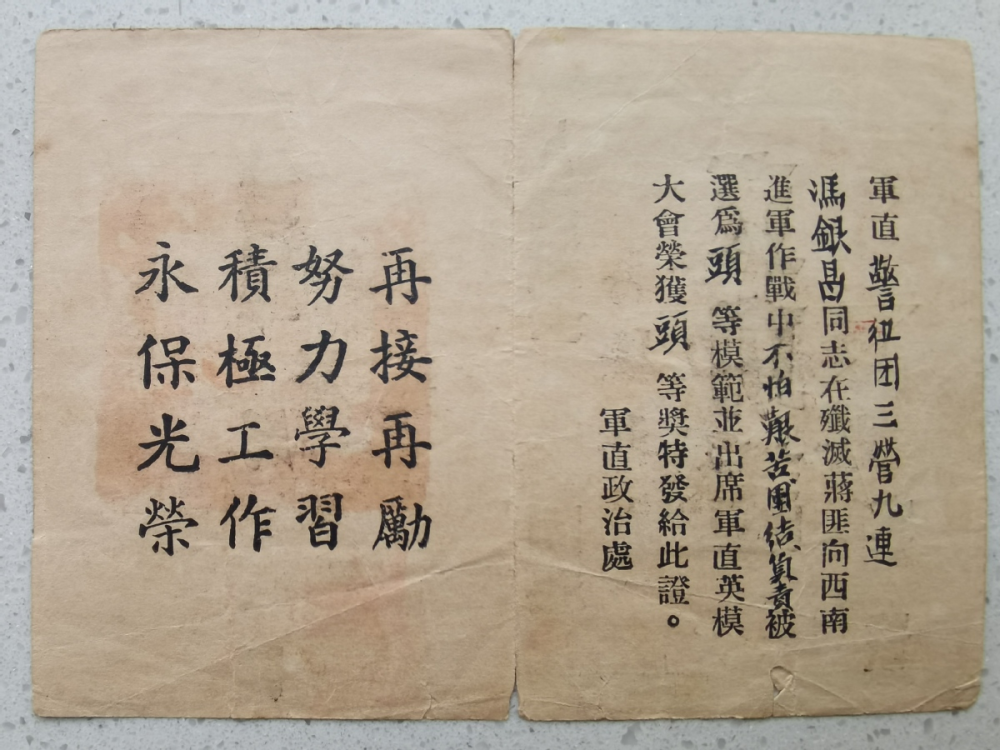 軍直警衛团三营九連
馮銀昌同志在殲滅蔣匪向西南
進軍作戰中不怕艱苦團结負責被
選爲頭等模範並出席軍直英模
大會榮獲頭等獎特發給此證。
軍直政治處
再接再勵
努力學習
積極工作
永保光榮